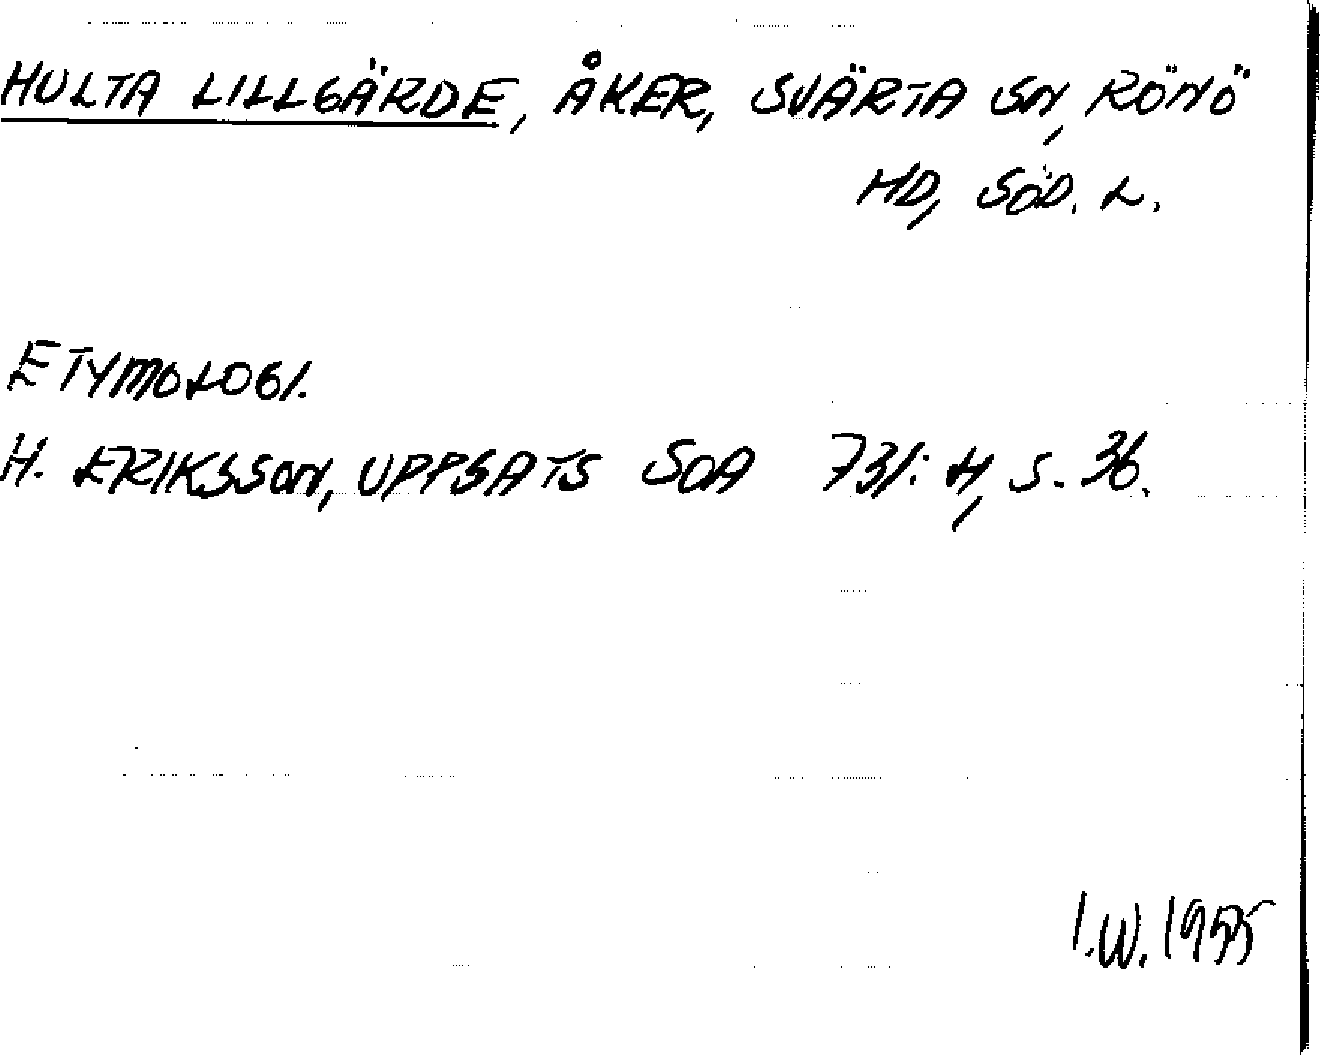 HULTA LILLGÄRDE, ÅKER, SVÄRTA SN, RÖNÖ
HD, SÖD. L.
ETYMOLOGI.
H. ERIKSSON, UPPSATS SOA 731: H, S. 36.
I.W. 1955